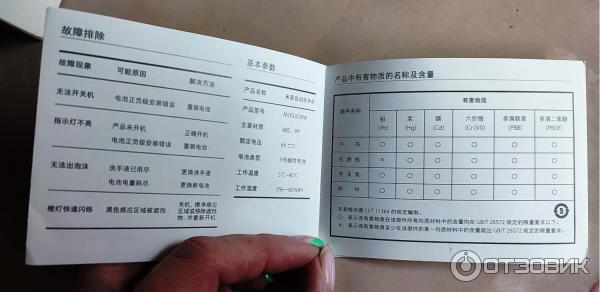 故障排除
故障现象 可能原因 解决方法
无法开关机 电池正负极安装错误 重装电池
指示灯不亮 产品未开机 正确开机
电池正负极安装错误 重装电池
无法出泡沫 洗手液已耗尽 更换洗手液
电池电量耗尽 更换新电池
橙灯快速闪烁 黑色感应区域被遮挡 关机,擦净感应
区域或移除遮挡
物,并重新开机
基本参数
产品名称 米家自动洗手机
产品型号
主要材质 ABS、PP
额定电压 6V
电池类型 5号碱性电池
工作温度 5℃~40℃
工作湿度 0%~85%RH
产品中有害物质的名称及含量
部件名称 有害物质
铅 汞 镉 六价铬 多溴联苯 多溴二苯醚
(Pb) (Hg) (Cd) (Cr(VI)) (PBB) (PBDE)
外壳 ○ ○ ○ ○ ○ ○
电路板 × ○ ○ ○ ○ ○
泡沫泵 ○ ○ ○ ○ ○ ○
附件 ○ ○ ○ ○ ○ ○
本表格依据SJ/T 11364的规定编制。
○:表示该有害物质在该部件所有均质材料中的含量均在GB/T 26572规定的限量要求以下。
×:表示该有害物质至少在该部件的某一均质材料中的含量超出GB/T 26572规定的限量要求。
5
7
ОТЗОВИК